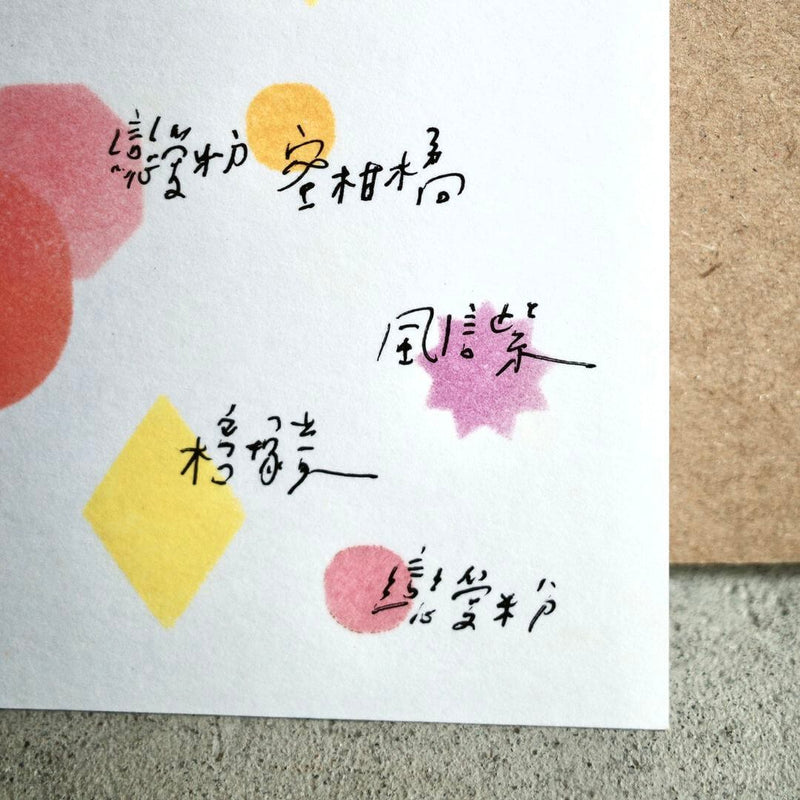 戀愛粉 蜜柑橘
風信紫
檸檬黃
戀愛粉